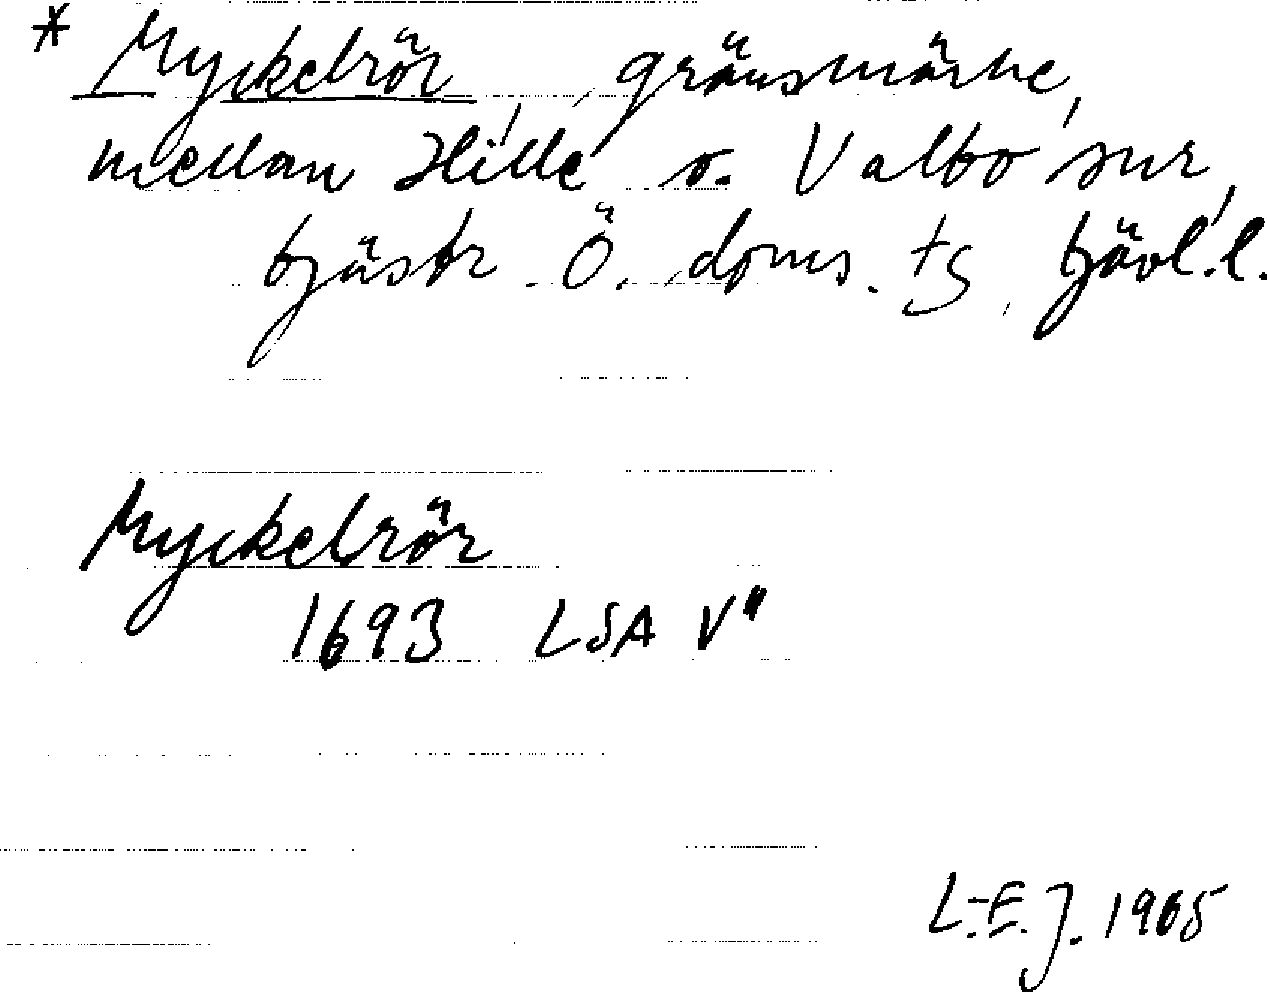 * Myckelrör, gränsmärke,
mellan Hille o. Valbo snr,
Gästr. Ö. doms. tg, Gävl. l.
Myckelrör
1693 LSA V"
L.-E. J. 1965